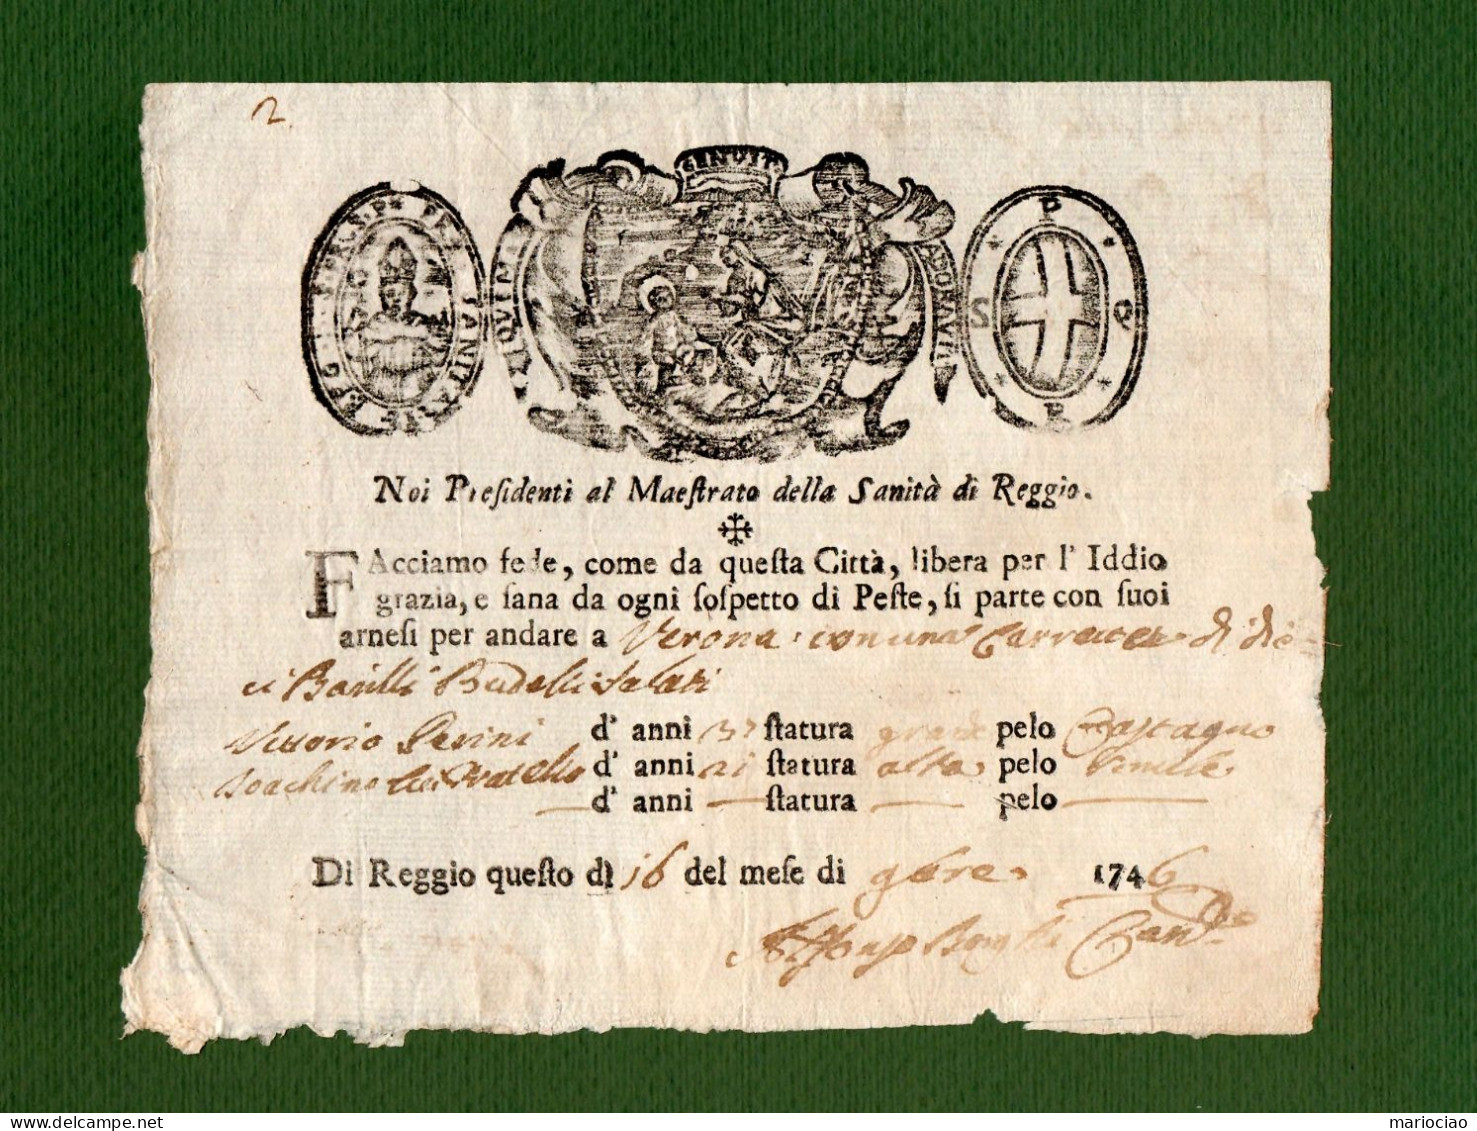 2.
GENUIT
QUEM
ADORAVIT
TANITATIS
P
S Q
R
Noi Preſidenti al Maeſtrato della Sanità di Reggio.
FAcciamo fede, come da queſta Città, libera per l' Iddio
grazia, e ſana da ogni ſoſpetto di Peſte, ſi parte con ſuoi
arneſi per andare a Verona con una di die-
ci Barilli Budelli Salati
Vittorio Perini d' anni 37 ſtatura grande pelo Castagno
Joachino Fratello d' anni 21 ſtatura alta pelo simile
— d' anni — ſtatura — pelo —
Di Reggio queſto dì 16 del meſe di 9bre 1746
Alfonso Borghi Canc.
mariociao